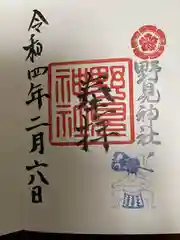 野見神社
奉拝
野見
神社
令和四年二月六日